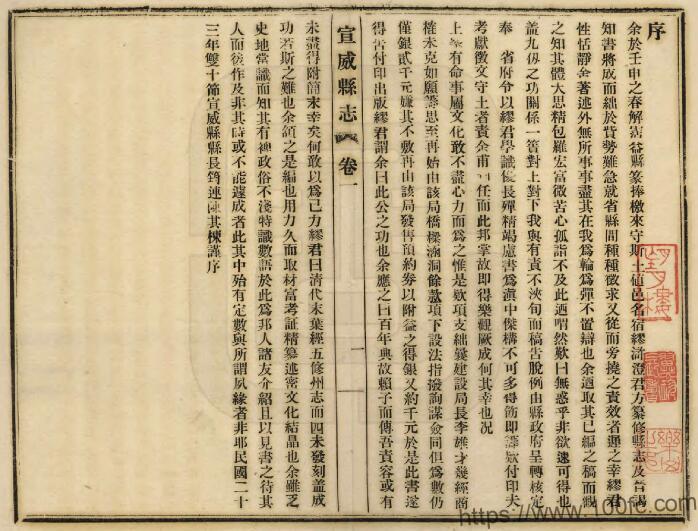 序
余於壬申之春解霑益縣篆捧檄來守斯土値邑名宿繆澥澄君方纂修縣志及晉謁
知書將成而絀於貲勢難急就省縣間種種徵求又從而旁撓之責效者遲之幸繆君
性恬靜金著述外無所事事盡其在我爲輪爲彈不置辯也余迺取其已編之稿而觀
之知其體大思精包羅宏富微苦心孤詣不及此迺喟然歎曰無惑乎非欲速可得也
蓋九仭之功關係一簣對上對下我與有責不浹旬而稿吿脫例由縣政府呈轉核定
奉 省府令以繆君學識優長殫精竭慮書爲滇中傑構不可多得飭卽籌欵付印夫
考獻徵文守土者責余甫 任而此邦掌故卽得樂觀厥成何其幸也况
上峯有命事屬文化敢不盡心力而爲之惟是欵項支絀曩建設局長李雄才幾經商
榷未克如願籌思至再始由該局橋樑涵洞餘欵項下設法指撥詢謀僉同但爲數仍
僅銀貳千元嫌其不敷再由該局發售預約劵以附益之得銀又約千元於是此書遂
得吿付印出版繆君謂余曰此公之功也余應之曰百年興故賴子而傳吾責容或有
宣威縣志 卷一
一
未盡得附簡末幸矣何敢以爲己力繆君曰清代末葉經五修州志而四未發刻蓋成
功若斯之難也余頷之是編也用力久而取材富考証精纂述密文化結晶也余雖乏
史地常識而知其有裨政俗不淺特識數語於此爲邦人諸友介紹且以見書之待其
人而後作及非其時或不能遽成者此其中殆有定數與所謂夙緣者非耶民國二十
三年雙十節宣威縣縣長筠連陳其棟謹序
https://www.100fc.com